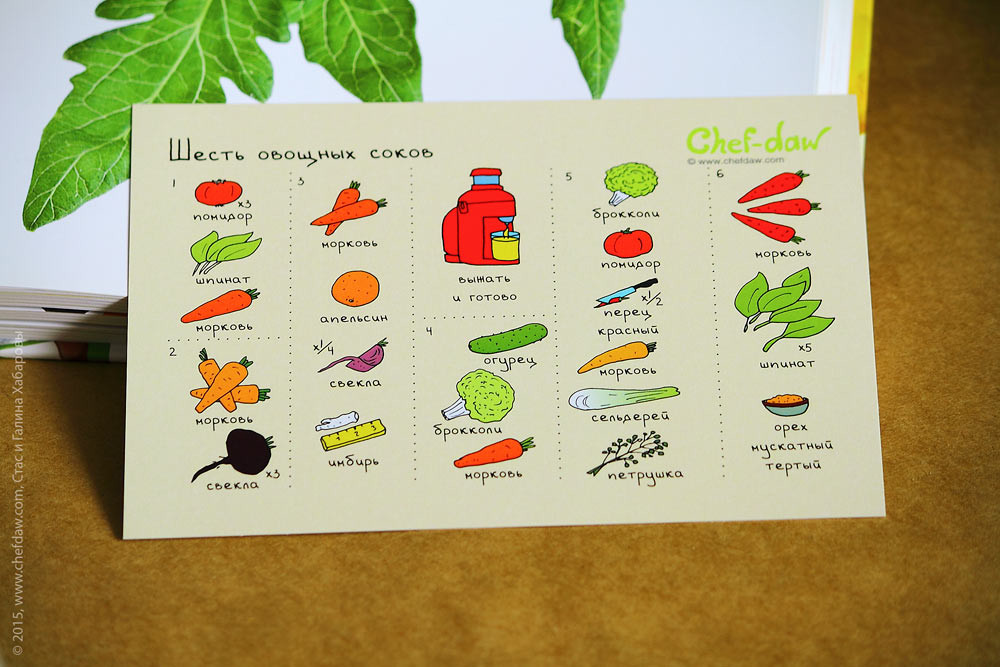 Шесть овощных соков
Chef-daw
© www.chefdaw.com
1
x3
помидор
шпинат
морковь
2
морковь
x3
свекла
3
морковь
апельсин
x1/4
свекла
1 2 3
имбирь
выжать
и готово
4
огурец
брокколи
морковь
5
брокколи
помидор
x1/2
перец
красный
морковь
сельдерей
петрушка
6
морковь
x5
шпинат
орех
мускатный
тертый
© 2015, www.chefdaw.com, Стас и Галина Хабаровы